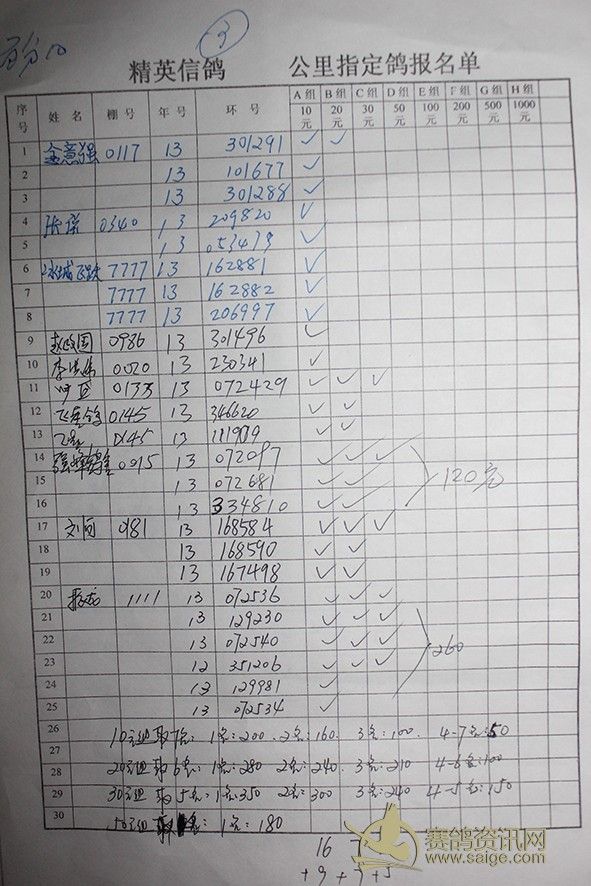 3
精英信鸽 公里指定鸽报名单
序号 姓名 棚号 年号 环号 A组 B组 C组 D组 E组 F组 G组 H组
10元 20元 30元 50元 100元 200元 500元 1000元
1 金意强 0117 13 301291 ✓ ✓
2 13 101677 ✓
3 13 301288 ✓
4 0340 13 209820 ✓
5 13 053473 ✓
6 7777 13 162881 ✓
7 7777 13 162882 ✓
8 7777 13 206997 ✓
9 赵政国 0986 13 301496 ✓
10 0020 13 230341 ✓
11 0133 13 072429 ✓ ✓ ✓
12 0145 13 346620 ✓ ✓
13 0145 13 ✓ ✓
14 0015 13 072097 ✓ ✓ ✓
15 13 072681 ✓ ✓ 120元
16 13 334810 ✓ ✓
17 刘 0181 13 168584 ✓ ✓ ✓
18 13 168590 ✓ ✓
19 13 167498 ✓ ✓
20 1111 13 072536 ✓ ✓ ✓
21 13 129230 ✓ ✓ ✓
22 13 072540 ✓ ✓ ✓ 260
23 12 351206 ✓ ✓ ✓
24 13 129981 ✓
25 13 072534 ✓
26 10元组取7名: 1名:200. 2名:160. 3名:100. 4-7名:50
27
28 20元组取6名: 1名:280 2名:240. 3名:210 4-6名:100
29 30元组取5名: 1名:350 2名:300 3名:240 4-5名:150
30 50元组取 名: 1名:180
16
+9+7+5
赛鸽资讯网
www.saige.com